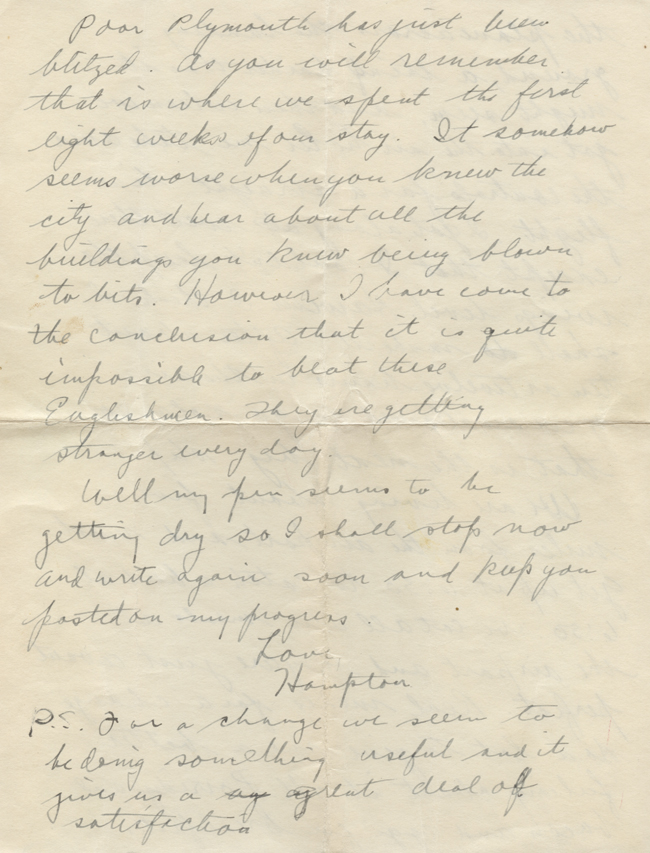 Poor Plymouth has just been
blitzed. As you will remember
that is where we spent the first
eight weeks of our stay. It somehow
seems worse when you knew the
city and hear about all the
buildings you knew being blown
to bits. However I have come to
the conclusion that it is quite
impossible to beat these
Englishmen. They are getting
stronger every day.
Well my pen seems to be
getting dry so I shall stop now
and write again soon and keep you
posted on my progress.
Love
Hampton
P.S. For a change we seem to
be doing something useful and it
gives us a great deal of
satisfaction